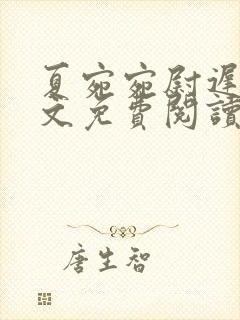 夏宛宛尉遲
文免費閱讀
唐生智